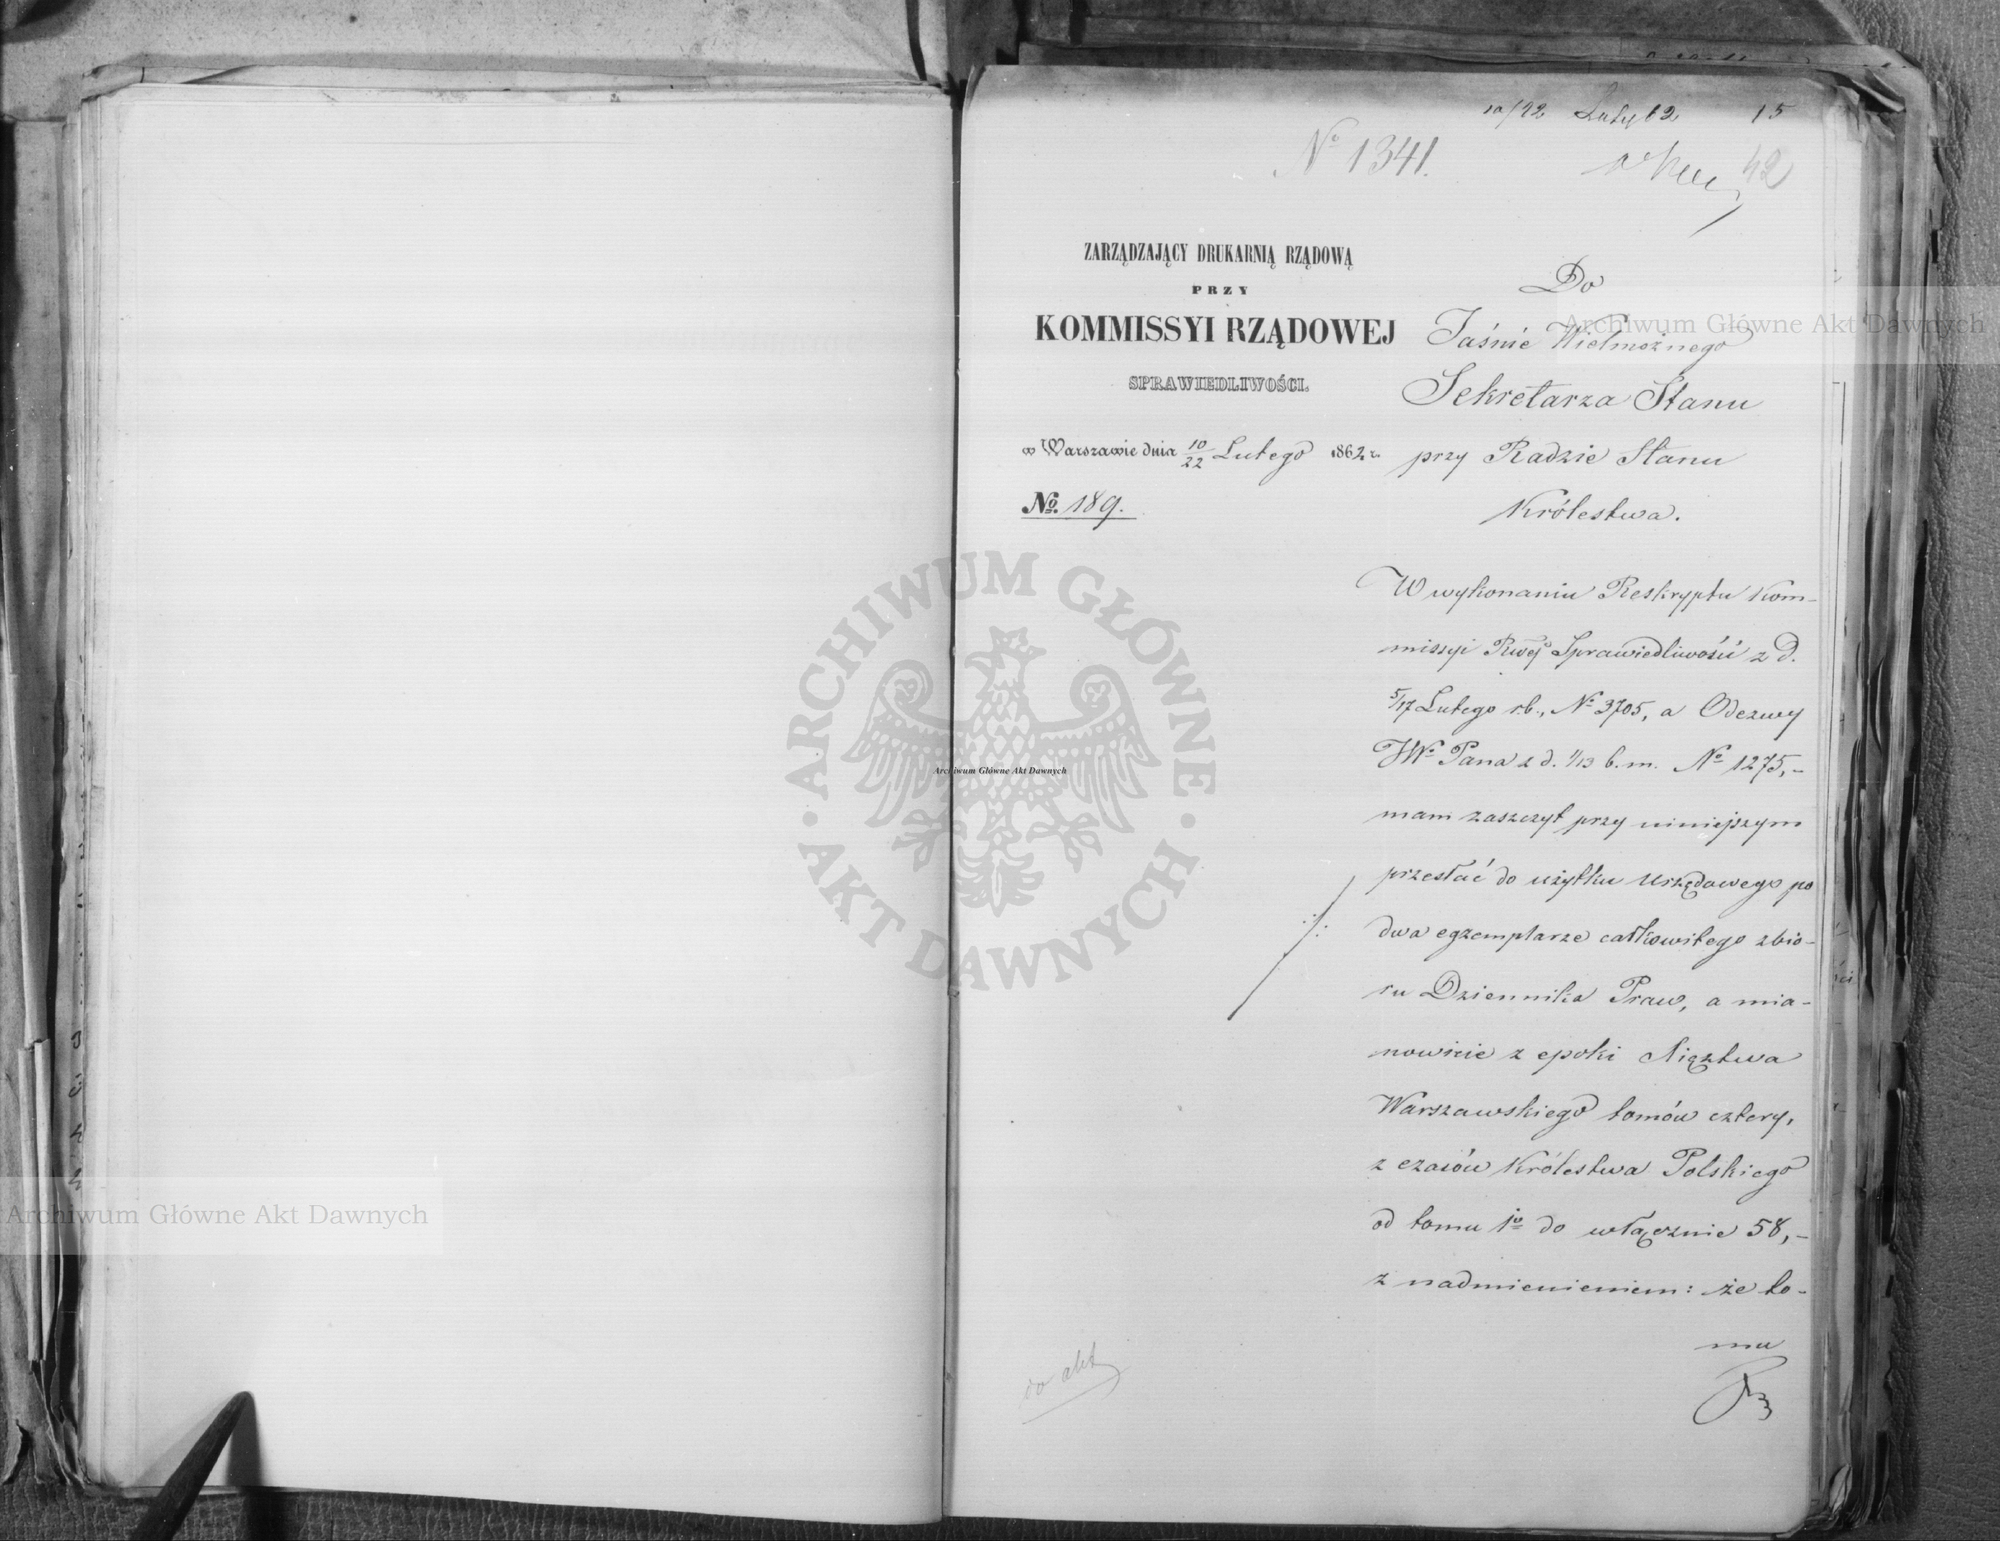 10/22 Luty 62 15
No 1341.
42
ZARZĄDZAJĄCY DRUKARNIĄ RZĄDOWĄ
PRZY
KOMMISSYI RZĄDOWEJ
SPRAWIEDLIWOŚCI.
w Warszawie dnia 10/22 Lutego 1862 r.
No. 189.
Do
Jaśnie Wielmożnego
Sekretarza Stanu
przy Radzie Stanu
Królestwa.
W wykonaniu Reskryptu Kom-
missyi Rwej Sprawiedliwości z d.
5/17 Lutego r.b., No 3705, a Odezwy
JWo Pana z d. 1/13 b.m. No 1275,-
mam zaszczyt przy niniejszym
przesłać do użytku Urzędowego po
dwa egzemplarze całkowitego zbio-
ru Dziennika Praw, a mia-
nowicie z epoki Xięztwa
Warszawskiego tomów cztery,
z czasów Królestwa Polskiego
od tomu 1o do włącznie 58,-
z nadmienieniem: że to-
mu
do akt
Archiwum Główne Akt Dawnych
Archiwum Główne Akt Dawnych
Archiwum Główne Akt Dawnych
ARCHIWUM GŁÓWNE · AKT DAWNYCH ·